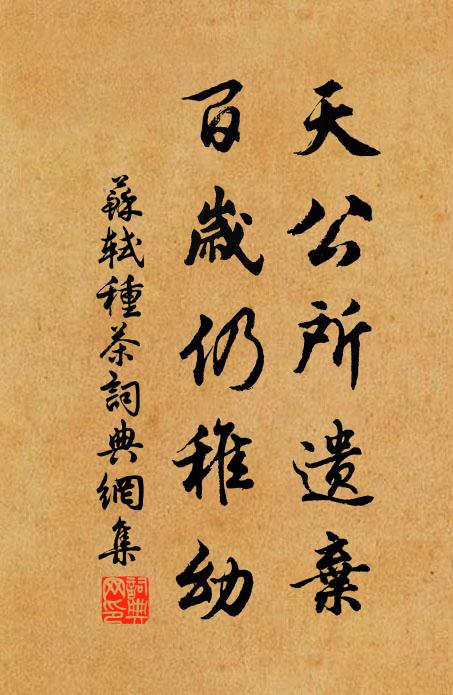 天公所遺棄
百歲仍稚幼
蘇軾種茶詞典網集
詞典
网印